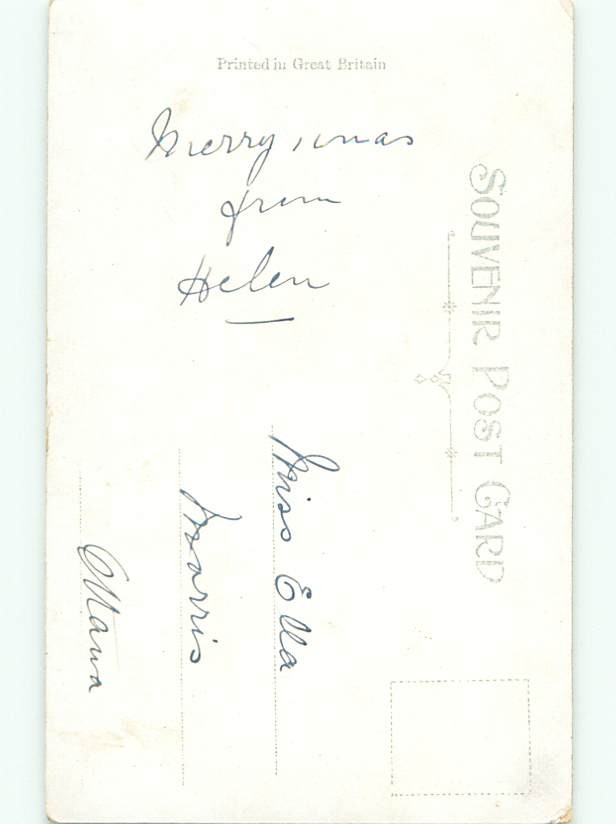 Printed in Great Britain
Merry Xmas
from
Helen
SOUVENIR POST CARD
Miss Ella
Morris
Ottawa